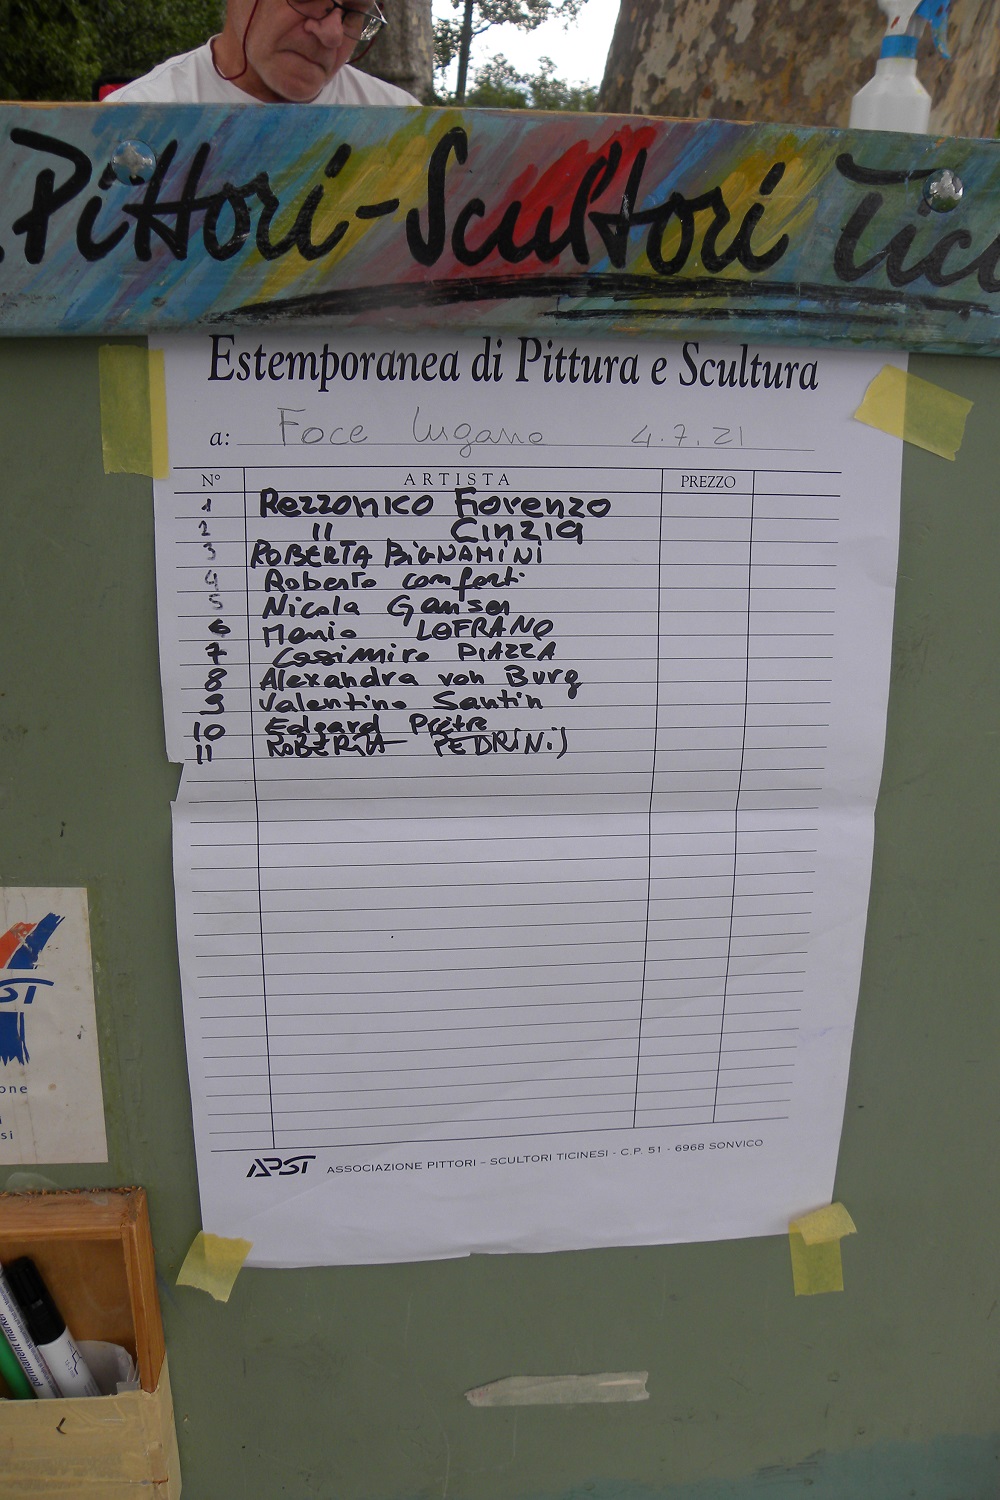 Pittori-Scultori Tici
Estemporanea di Pittura e Scultura
a: Foce Lugano 4.7.21
N° ARTISTA PREZZO
1 Rezzonico Fiorenzo
2 " Cinzia
3 ROBERTA BiGNAMINI
4 Roberto comforti
5 Nicola Ganser
6 LOFRANO
7 Casimiro PIAZZA
8 Alexandra von Burg
9 Valentino Santin
10 Edgard Prêtre
11 ROBERTA PEDRINi
ST
one
si
APST ASSOCIAZIONE PITTORI - SCULTORI TICINESI - C.P. 51 - 6968 SONVICO
permanent marker